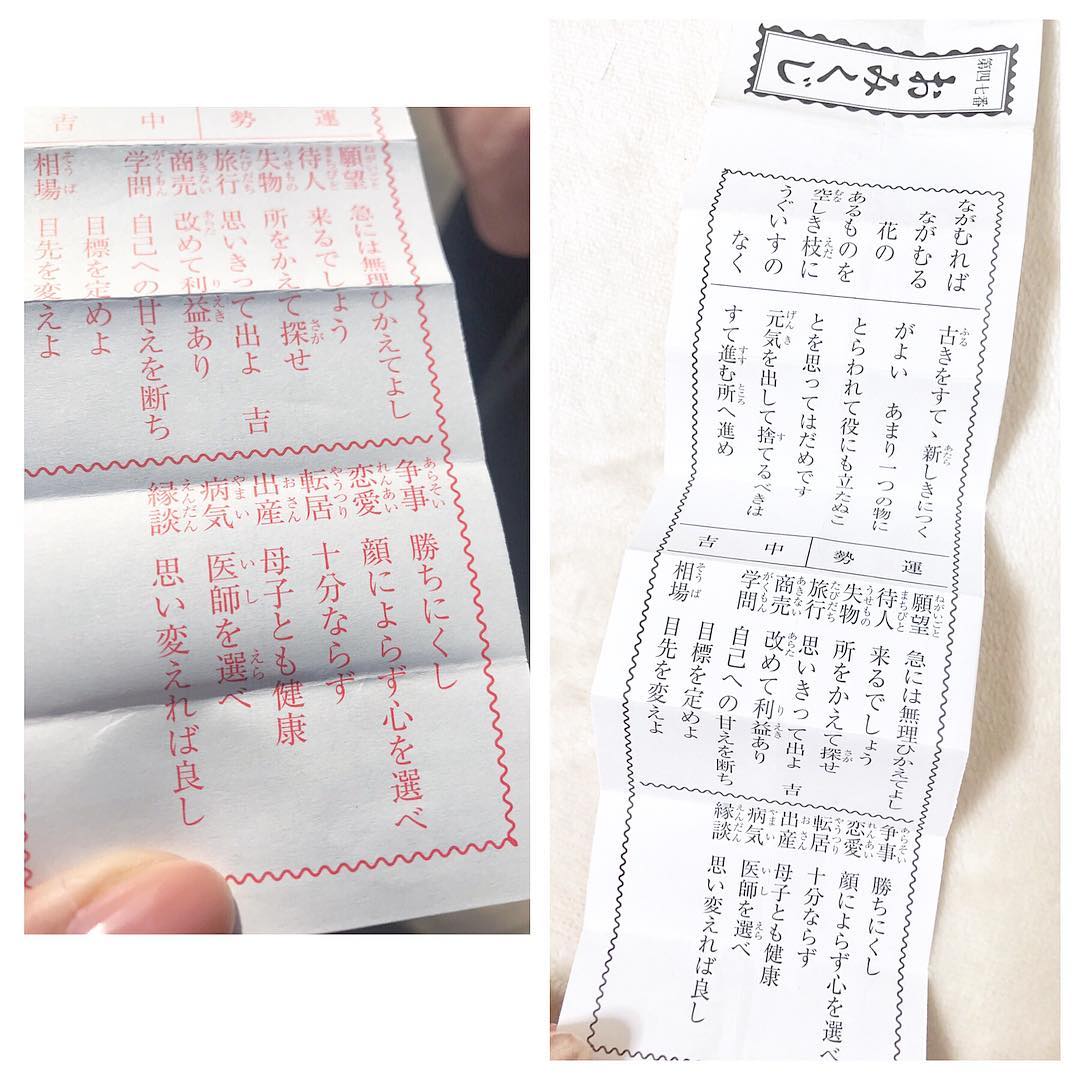 運勢 中吉
願望 急には無理ひかえてよし
待人 来るでしょう
失物 所をかえて探せ
旅行 思いきって出よ 吉
商売 改めて利益あり
学問 自己への甘えを断ち
目標を定めよ
相場 目先を変えよ
争事 勝ちにくし
恋愛 顔によらず心を選べ
転居 十分ならず
出産 母子とも健康
病気 医師を選べ
縁談 思い変えれば良し
第四七番
おみくじ
ながむれば
ながむる
花の
あるものを
空しき枝に
うぐいすの
なく
古きをすてゝ新しきにつく
がよい あまり一つの物に
とらわれて役にも立たぬこ
とを思ってはだめです
元気を出して捨てるべきは
すて進む所へ進め
運勢 中吉
願望 急には無理ひかえてよし
待人 来るでしょう
失物 所をかえて探せ
旅行 思いきって出よ 吉
商売 改めて利益あり
学問 自己への甘えを断ち
目標を定めよ
相場 目先を変えよ
争事 勝ちにくし
恋愛 顔によらず心を選べ
転居 十分ならず
出産 母子とも健康
病気 医師を選べ
縁談 思い変えれば良し